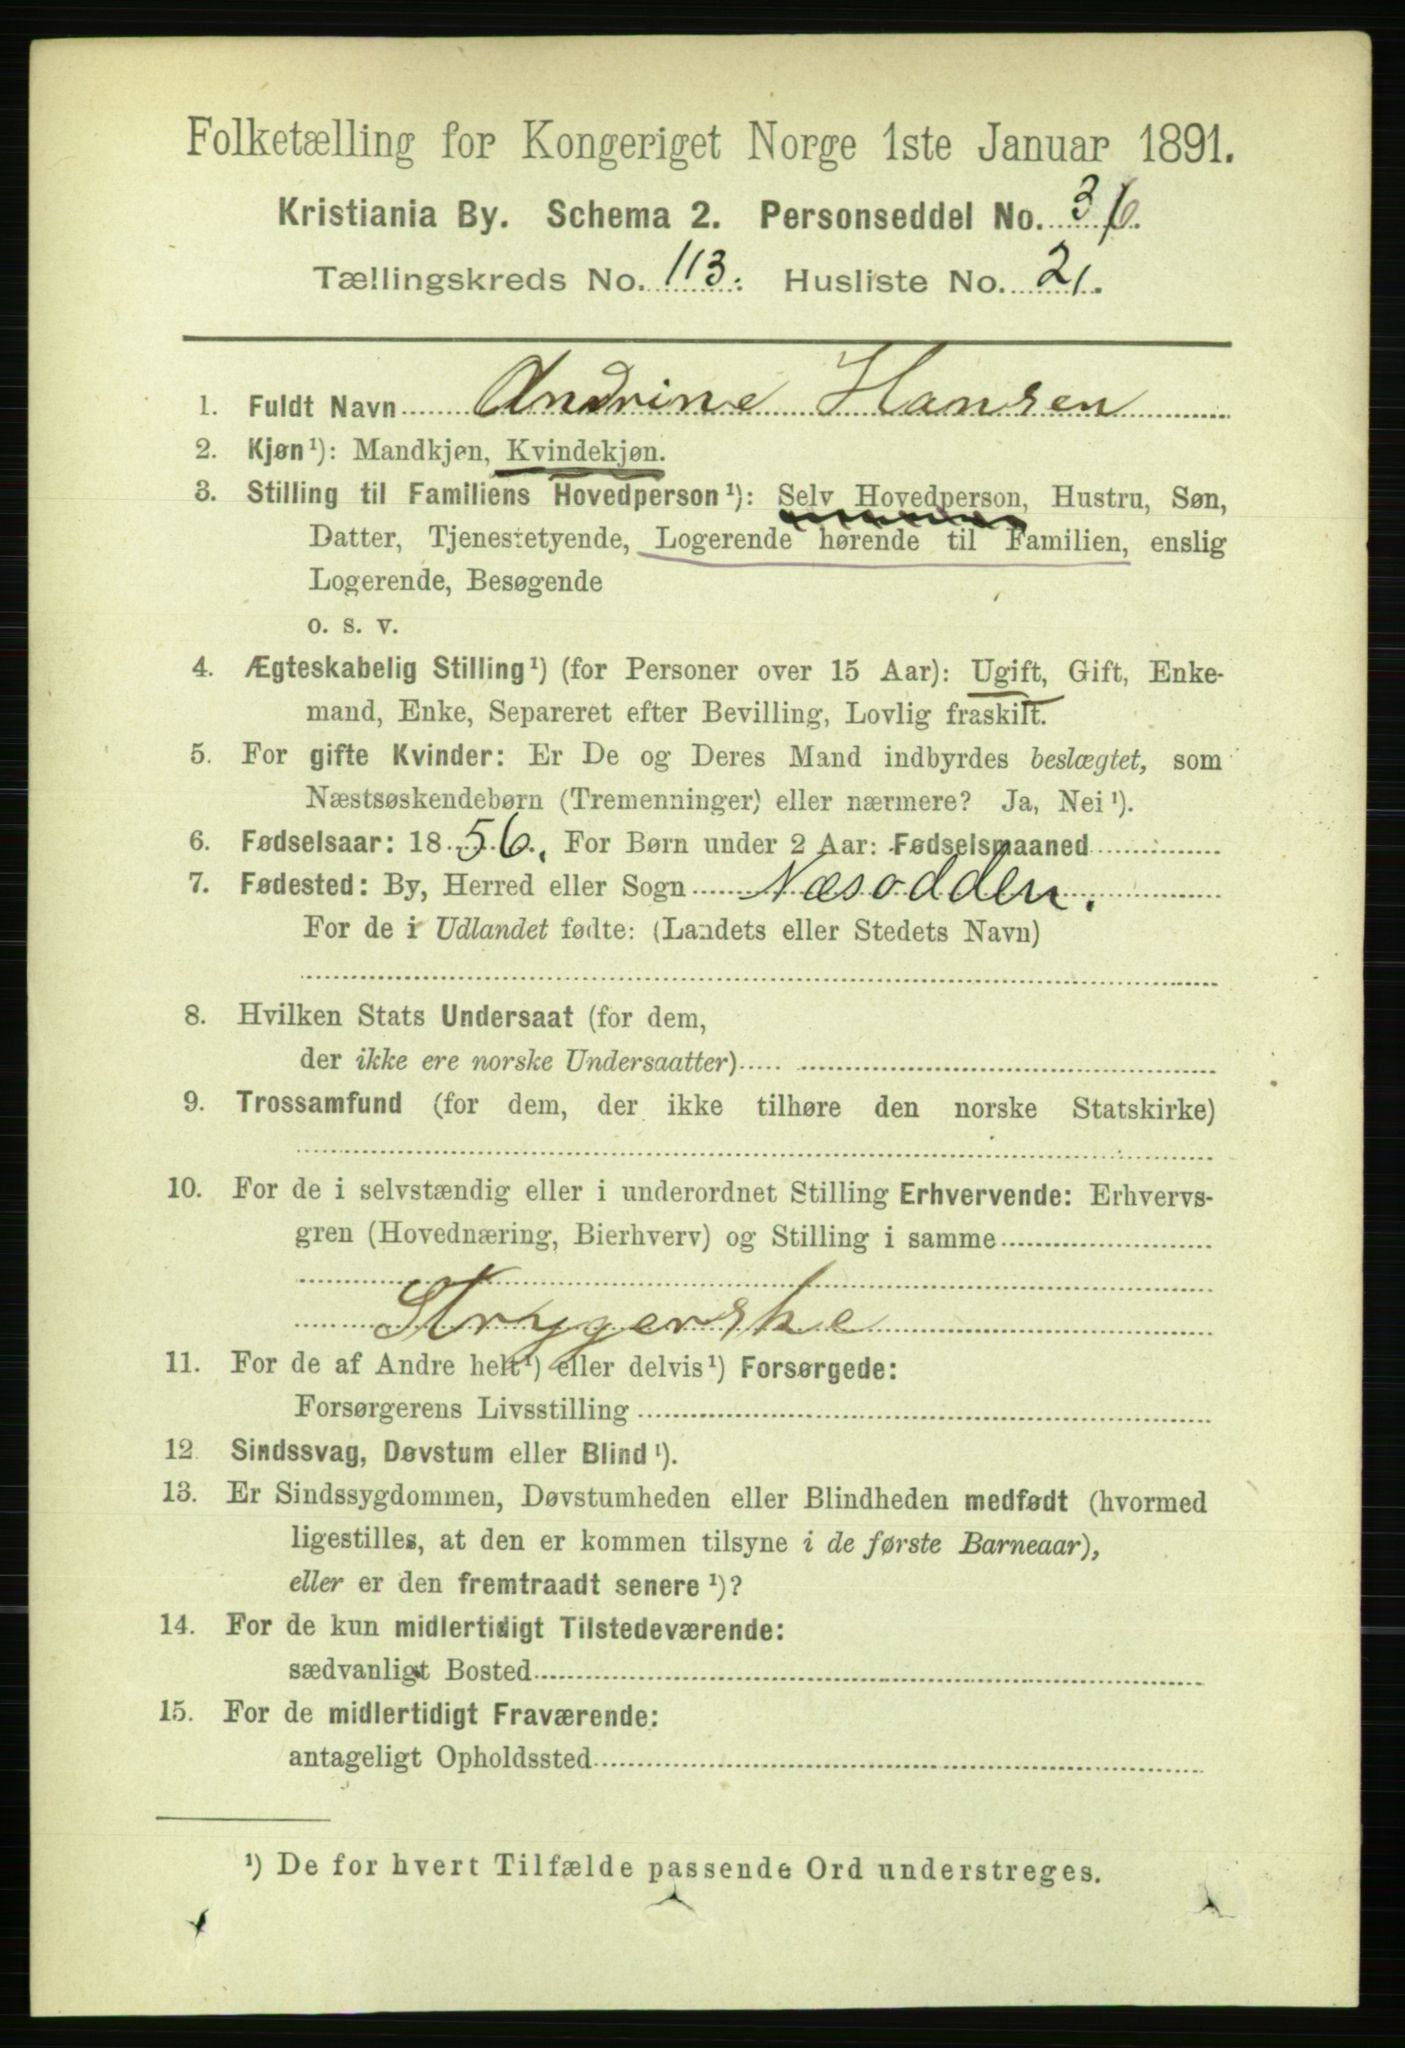 Folketælling for Kongeriget Norge 1ste Januar 1891.
Kristiania By. Schema 2. Personseddel No. 36.
Tællingskreds No. 113. Husliste No. 21.
1. Fuldt Navn Andrine Hansen
2. Kjøn¹): Mandkjøn, Kvindekjøn.
3. Stilling til Familiens Hovedperson¹): Selv Hovedperson, Hustru, Søn,
Datter, Tjenestetyende, Logerende hørende til Familien, enslig
Logerende, Besøgende
o. s. v.
4. Ægteskabelig Stilling¹) (for Personer over 15 Aar): Ugift, Gift, Enke-
mand, Enke, Separeret efter Bevilling, Lovlig fraskilt.
5. For gifte Kvinder: Er De og Deres Mand indbyrdes beslægtet, som
Næstsøskendebørn (Tremenninger) eller nærmere? Ja, Nei¹).
6. Fødselsaar: 1856. For Børn under 2 Aar: Fødselsmaaned
7. Fødested: By, Herred eller Sogn Næsodden.
For de i Udlandet fødte: (Landets eller Stedets Navn)
8. Hvilken Stats Undersaat (for dem,
der ikke ere norske Undersaatter)
9. Trossamfund (for dem, der ikke tilhøre den norske Statskirke)
10. For de i selvstændig eller i underordnet Stilling Erhvervende: Erhvervs-
gren (Hovednæring, Bierhverv) og Stilling i samme
Strygerske
11. For de af Andre helt¹) eller delvis¹) Forsørgede:
Forsørgerens Livsstilling
12. Sindssvag, Døvstum eller Blind¹).
13. Er Sindssygdommen, Døvstumheden eller Blindheden medfødt (hvormed
ligestilles, at den er kommen tilsyne i de første Barneaar),
eller er den fremtraadt senere¹)?
14. For de kun midlertidigt Tilstedeværende:
sædvanligt Bosted
15. For de midlertidigt Fraværende:
antageligt Opholdssted
¹) De for hvert Tilfælde passende Ord understreges.